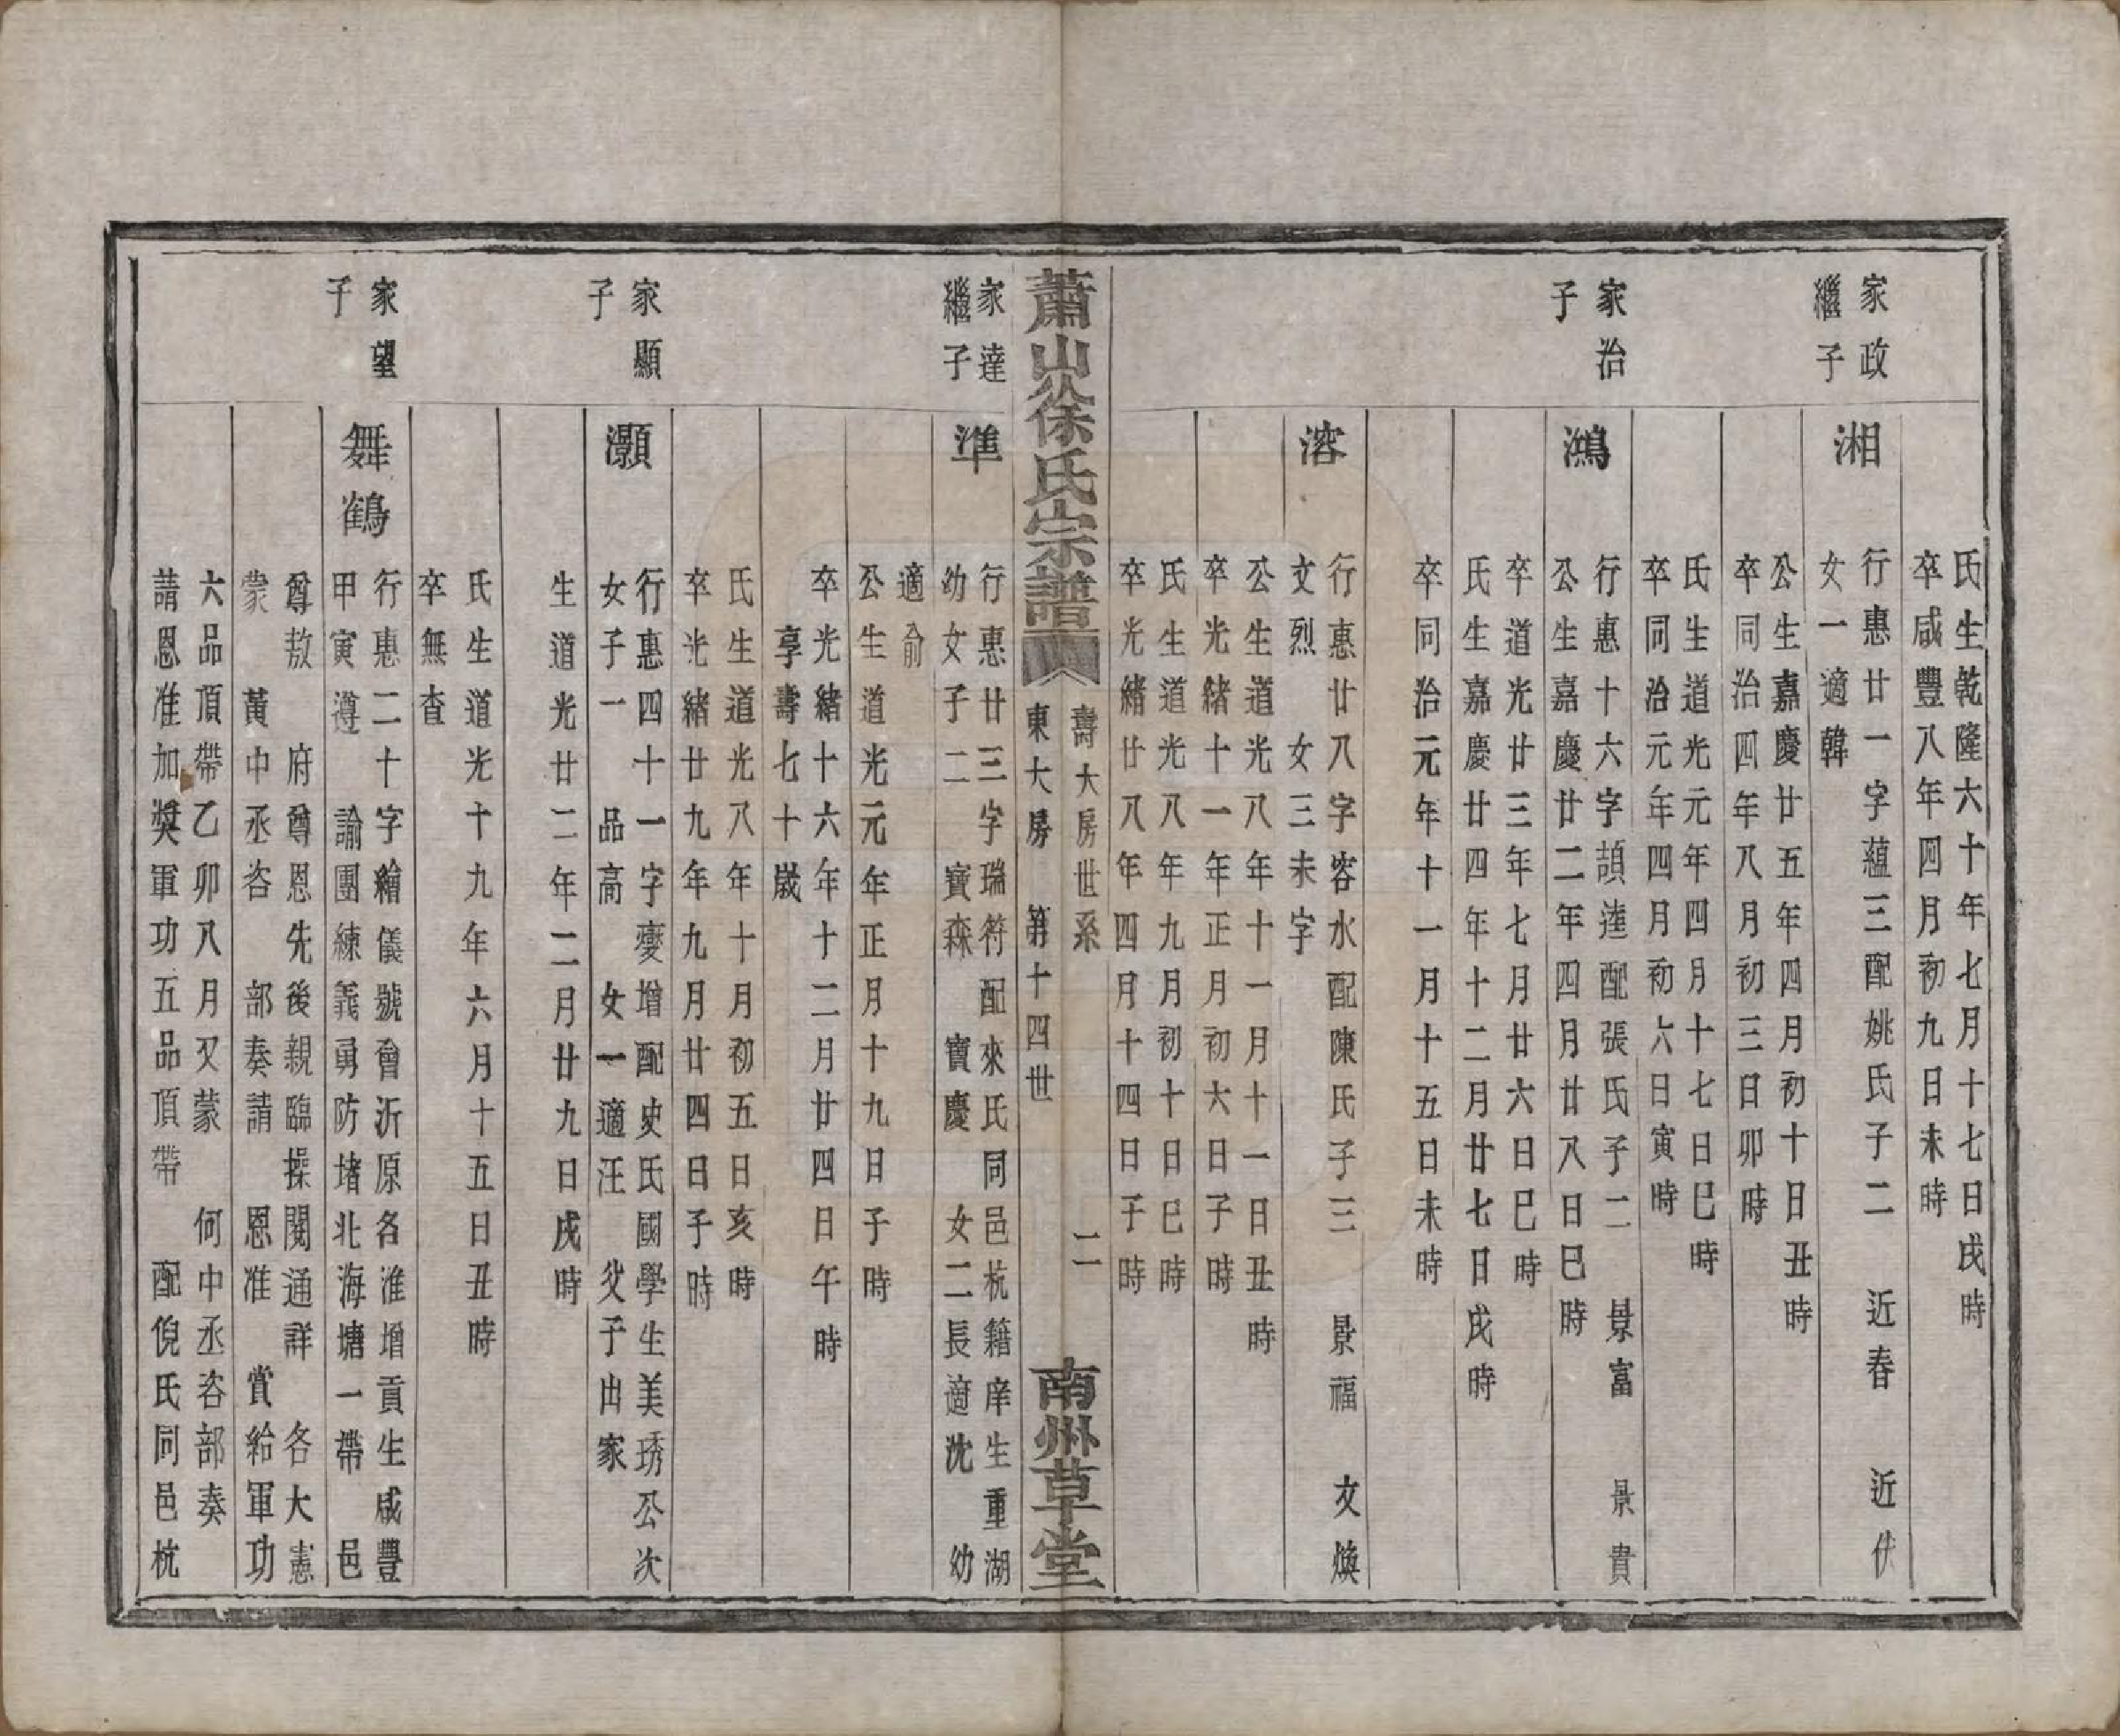 氏生乾隆六十年七月十七日戌時
卒咸豐八年四月初九日未時
家政
繼子
湘
行惠廿一字蘊三配姚氏子二　近春　近伏
女一適韓
公生嘉慶廿五年四月初十日丑時
卒同治四年八月初三日卯時
氏生道光元年四月十七日巳時
卒同治元年四月初六日寅時
家治
子
鴻
行惠十六字頡逵配張氏子二　景富　景貴
公生嘉慶廿二年四月廿八日巳時
卒道光廿三年七月廿六日巳時
氏生嘉慶廿四年十二月廿七日戌時
卒同治元年十一月十五日未時
溶
行惠廿八字容水配陳氏子三　景福　文煥
文烈　女三未字
公生道光八年十一月十一日丑時
卒光緒十一年正月初六日子時
氏生道光八年九月初十日巳時
卒光緒廿八年四月十四日子時
蕭山徐氏宗譜
壽大房世系　二
東大房　第十四世
南州草堂
家達
繼子
準
行惠廿三字瑞符配來氏同邑杭籍庠生重湖
幼女子二　寶森　寶慶　女二長適沈　幼
適俞
公生道光元年正月十九日子時
卒光緒十六年十二月廿四日午時
享壽七十歲
氏生道光八年十月初五日亥時
卒光緒廿九年九月廿四日子時
家顯
子
灝
行惠四十一字夔增配史氏國學生美琇公次
女子一　品高　女一適汪　父子出家
生道光廿二年二月廿九日戌時
氏生道光十九年六月十五日丑時
卒無查
家望
子
舞鶴
行惠二十字繪儀號曾沂原名淮增貢生咸豐
甲寅遵　諭團練義勇防堵北海塘一帶　邑
尊敖　府尊恩先後親臨操閱通詳　各大憲
蒙　黃中丞咨　部奏請　恩准　賞給軍功
六品頂帶乙卯八月又蒙　何中丞咨部奏
請恩准加獎軍功五品頂帶　配倪氏同邑杭